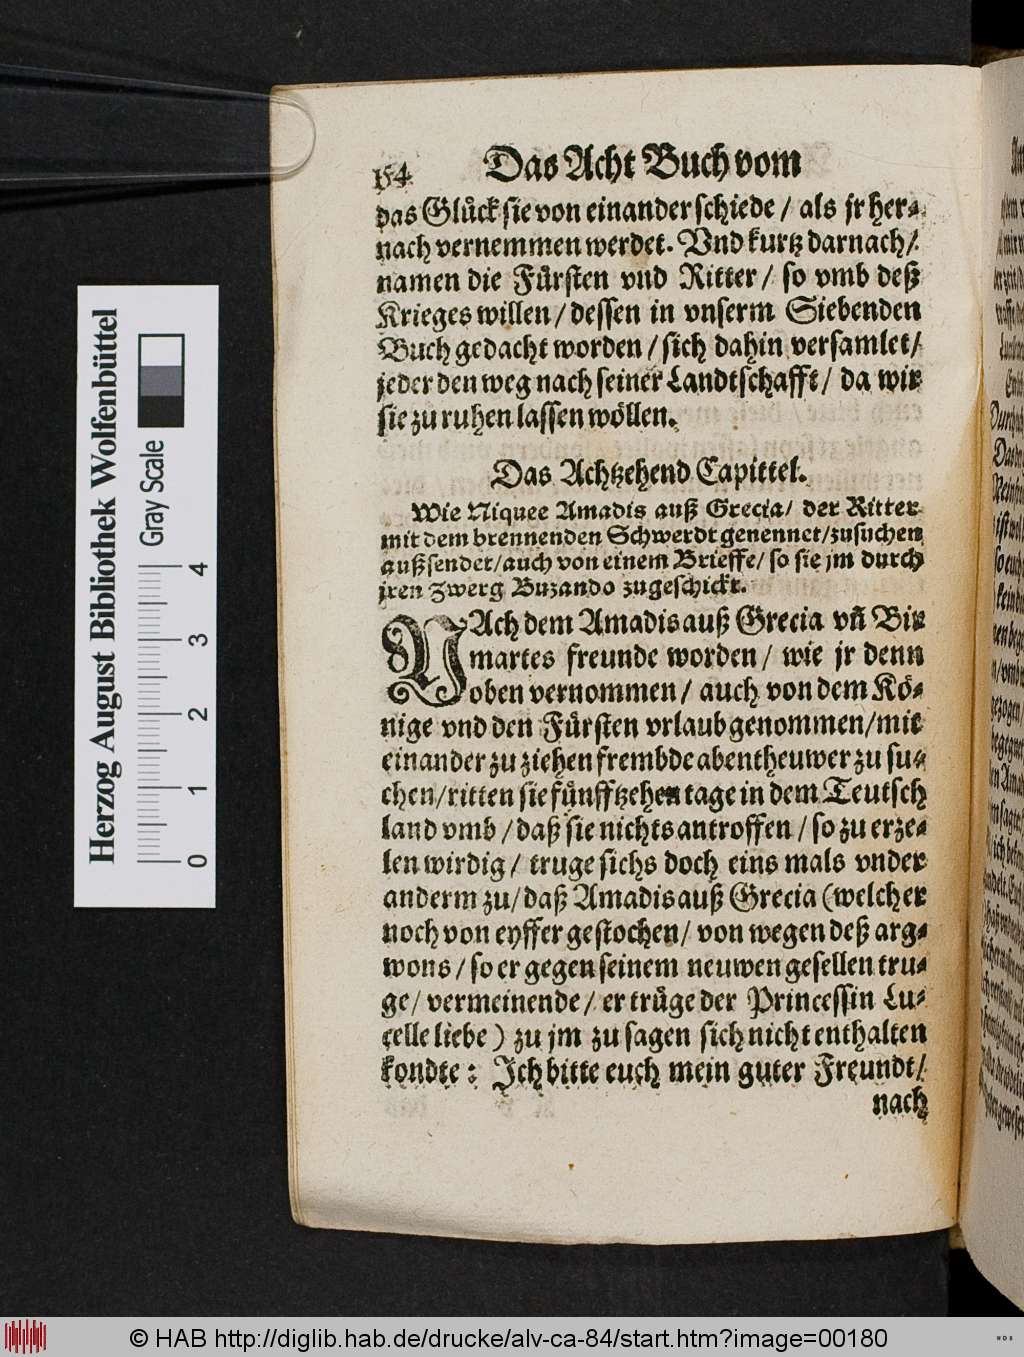 154 Das Acht Buch vom
das Glück sie von einander schiede / als jr her⸗
nach vernemmen werdet. Vnd kurtz darnach /
namen die Fürsten vnd Ritter / so vmb deß
Krieges willen / dessen in vnserm Siebenden
Buch gedacht worden / sich dahin versamlet /
jeder den weg nach seiner Landtschafft / da wir
sie zu ruhen lassen wöllen.
Das Achtzehend Capittel.
Wie Niquee Amadis auß Grecia / der Ritter
mit dem brennenden Schwerdt genennet / zusuchen
außsendet / auch von einem Brieffe / so sie jm durch
jren Zwerg Buzando zugeschickt.
NAch dem Amadis auß Grecia vñ Bir
martes freunde worden / wie jr denn
oben vernommen / auch von dem Kö⸗
nige vnd den Fürsten vrlaub genommen / mit
einander zu ziehen frembde abentheuwer zu su⸗
chen / ritten sie fünfftzehen tage in dem Teutsch
land vmb / daß sie nichts antroffen / so zu erze⸗
len wirdig / truge sichs doch eins mals vnder
anderm zu / daß Amadis auß Grecia (welcher
noch von eyffer gestochen / von wegen deß arg⸗
wons / so er gegen seinem neuwen gesellen tru⸗
ge / vermeinende / er trüge der Princessin Lu⸗
celle liebe) zu jm zu sagen sich nicht enthalten
kondte : Ich bitte euch mein guter Freundt /
nach
Herzog August Bibliothek Wolfenbüttel
Gray Scale
0 1 2 3 4
© HAB http://diglib.hab.de/drucke/alv-ca-84/start.htm?image=00180